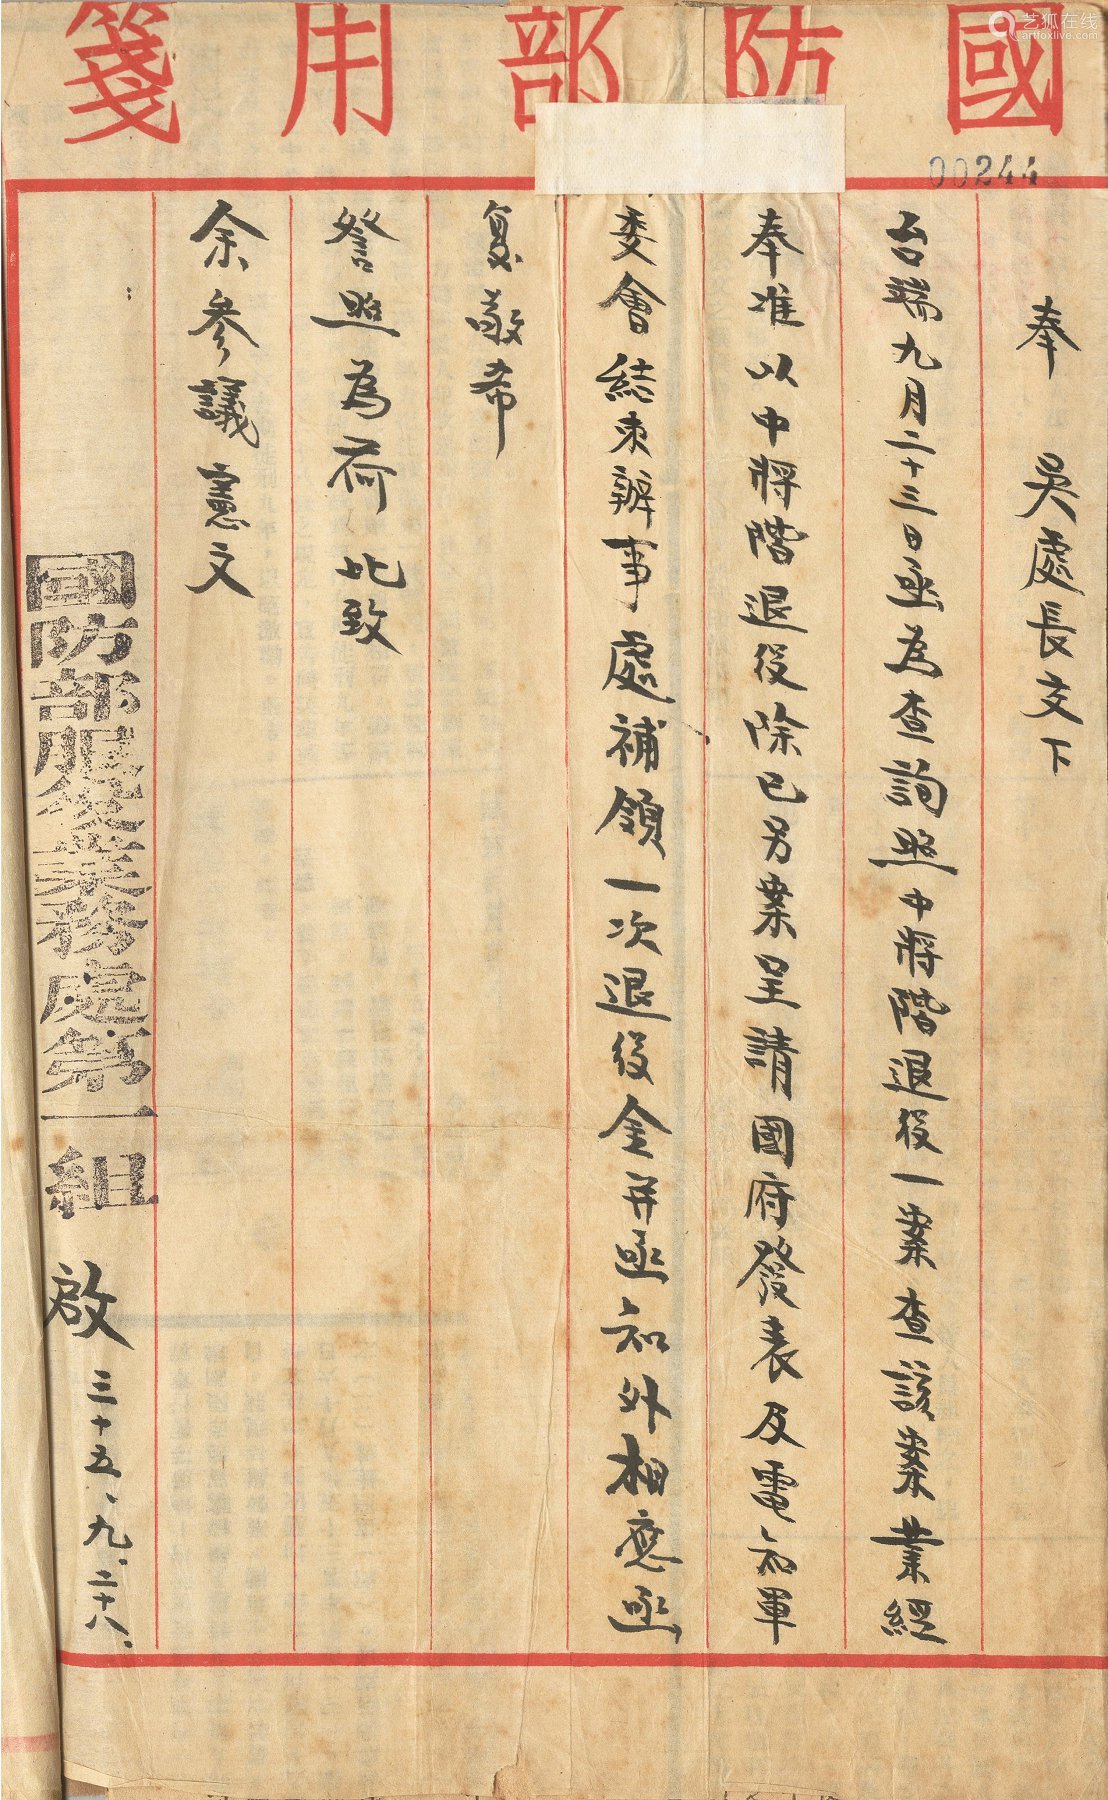 國防部用箋
艺狐在线
artfoxlive.com
00244
奉 吳處長交下
台端九月二十三日函為查詢照中將階退役一案查該案業經
奉准以中將階退役除已另案呈請國府發表及電知軍
委會結束辦事處補領一次退役金并函知外相應函
復敬希
詧照為荷 此致
余參議憲文
國防部服役業務處第一組 啟 三十五、九.二十八.